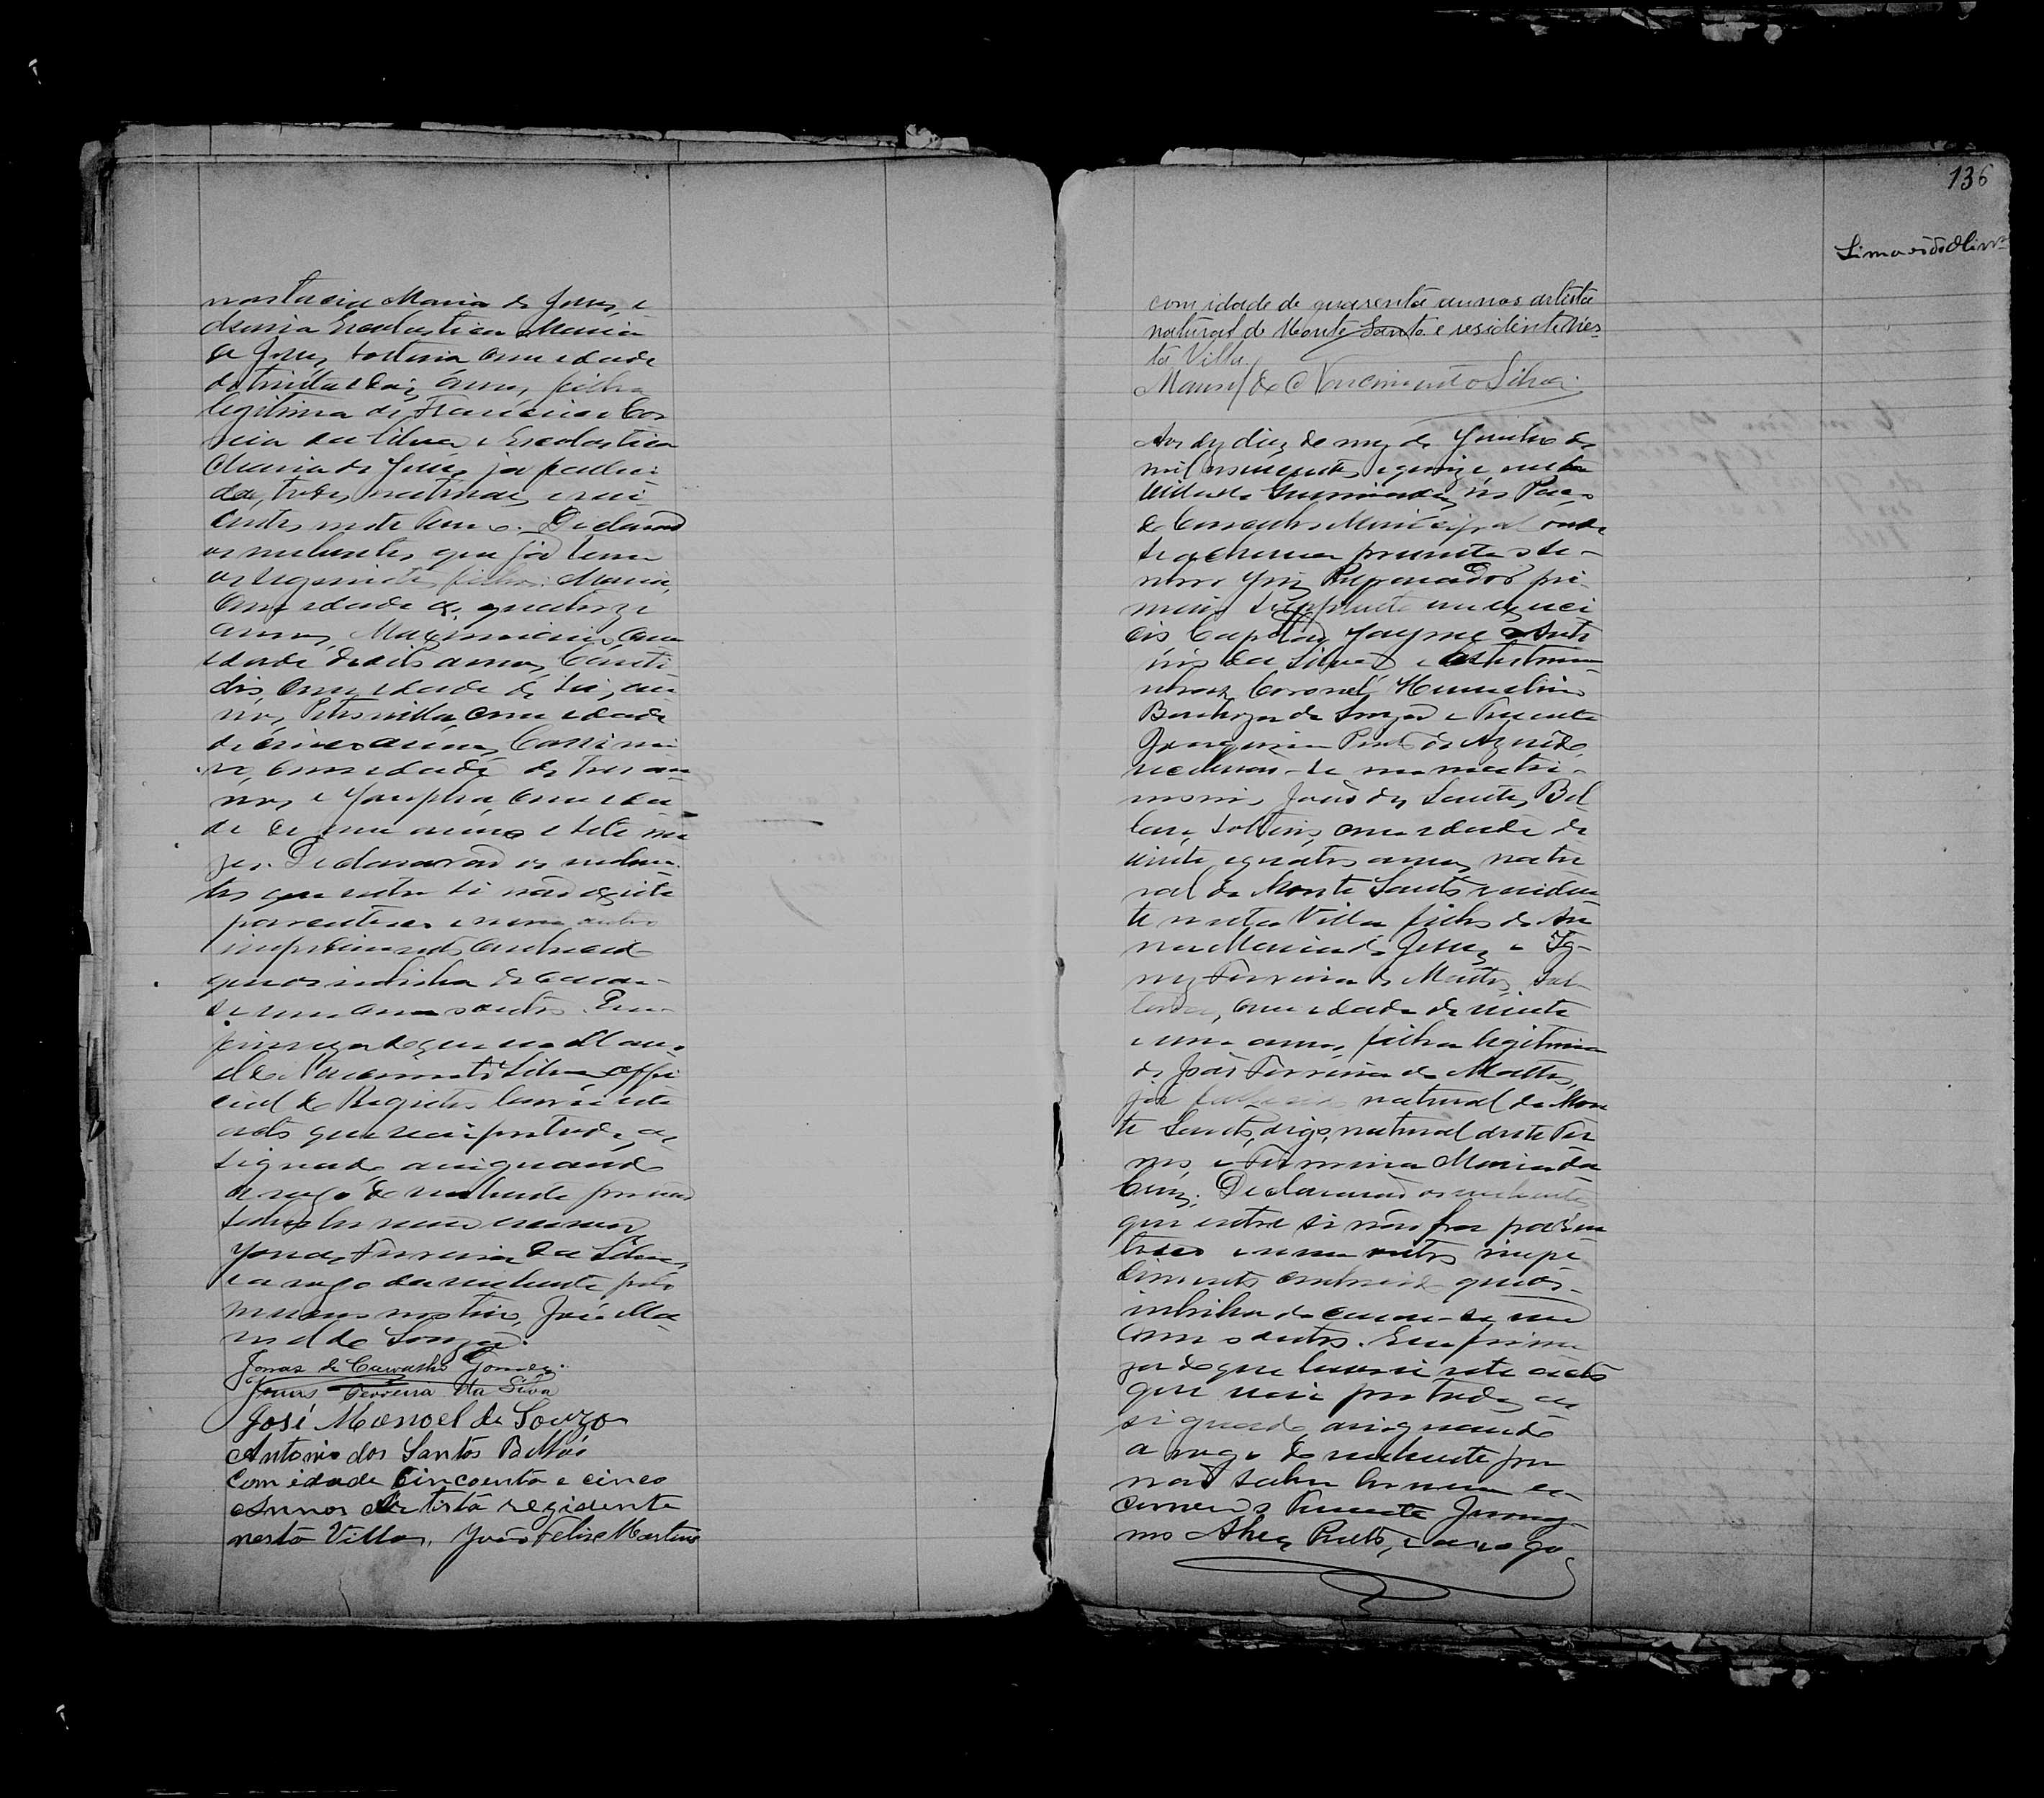 nastacia Maria de Jesus, e
dona Escolastica Maria
de Jesus, solteira com edade
de trinta e dois annos, filha
legitima de Francisco Cor
reia da Silva e Escolastica
Maria de Jesus, ja falleci
da, todos naturaes e resi
dentes neste Termo. Declararão
os nubentes que já tem
os seguintes filhos: Maria,
com edade de quatorze
annos, Maximiano, com
edade de oito annos, Canti
dio com edade de seis an
nos, Petronilla, com edade
de cinco annos, Cassimi
ro, com edade de tres an
nos e Josepha, com eda
de de um anno e sete me
zes. Declararão os nuben
tes que entre si não existe
parentesco e nem outro
impedimento conhecido
que os inhiba de casar-
se um com o outro. Em
firmeza do que eu Mano
el do Nascimento Silva offi
cial do Registro lavrei este
acto que vai por todos as
signado assignando
a rogo do nubente por não
saber ler nem escrever
Jonas Ferreira da Silva,
e a rogo da nubente pelo
mesmo motivo, José Ma
noel de Souza.
Jonas de Carvalho Gomes.
Jonas Ferreira da Silva
José Manoel de Souza
Antonio dos Santos Bellas
com idade Cincoenta e cinco
Annos Artista rezidente
nesta Villa, João Felix Martins
136
com idade de quarenta annos artista
natural de Monte Santo e residente nes-
ta Villa.
Manoel do Nascimento Silva.
Aos dez dias do mez de Junho de
mil novecentos e quinze nesta
Villa de no Paço
do Conselho Municipal onde
se achavam presentes o te-
nro Juiz Preparador pri
meiro supplente em exerci
cio Capitão Jayme Anto
nio da Silva e as testemu
nhas Coronel Hermelino
Barboza de Souza e Tenente
Joaquim Pinto de Azevedo,
receberão-se em matri-
monio João dos Santos Bel
las, solteiro, com edade de
vinte e quatro annos, natu
ral de Monte Santo e residen
te nesta Villa filho de An
na Maria de Jesus e Ig-
nez Ferreira de Mattos, sol
teira, com edade de vinte
e um annos, filha legitima
de João Ferreira de Mattos,
ja fallecido natural de Mon
te Santo, digo, natural deste Ter
mo, e Firmina Maria da
Cruz. Declararão os nubentes
que entre si não ha paren
tesco e nem outro impe
dimento conhecido que os
inhiba de casar-se um
com o outro. Em firme
za do que lavrei este acto
que vai por todos as
signado, assignando
a rogo do nubente por
não saber ler nem es-
crever o Tenente Jerony-
mo Alves Preto, e a rogo